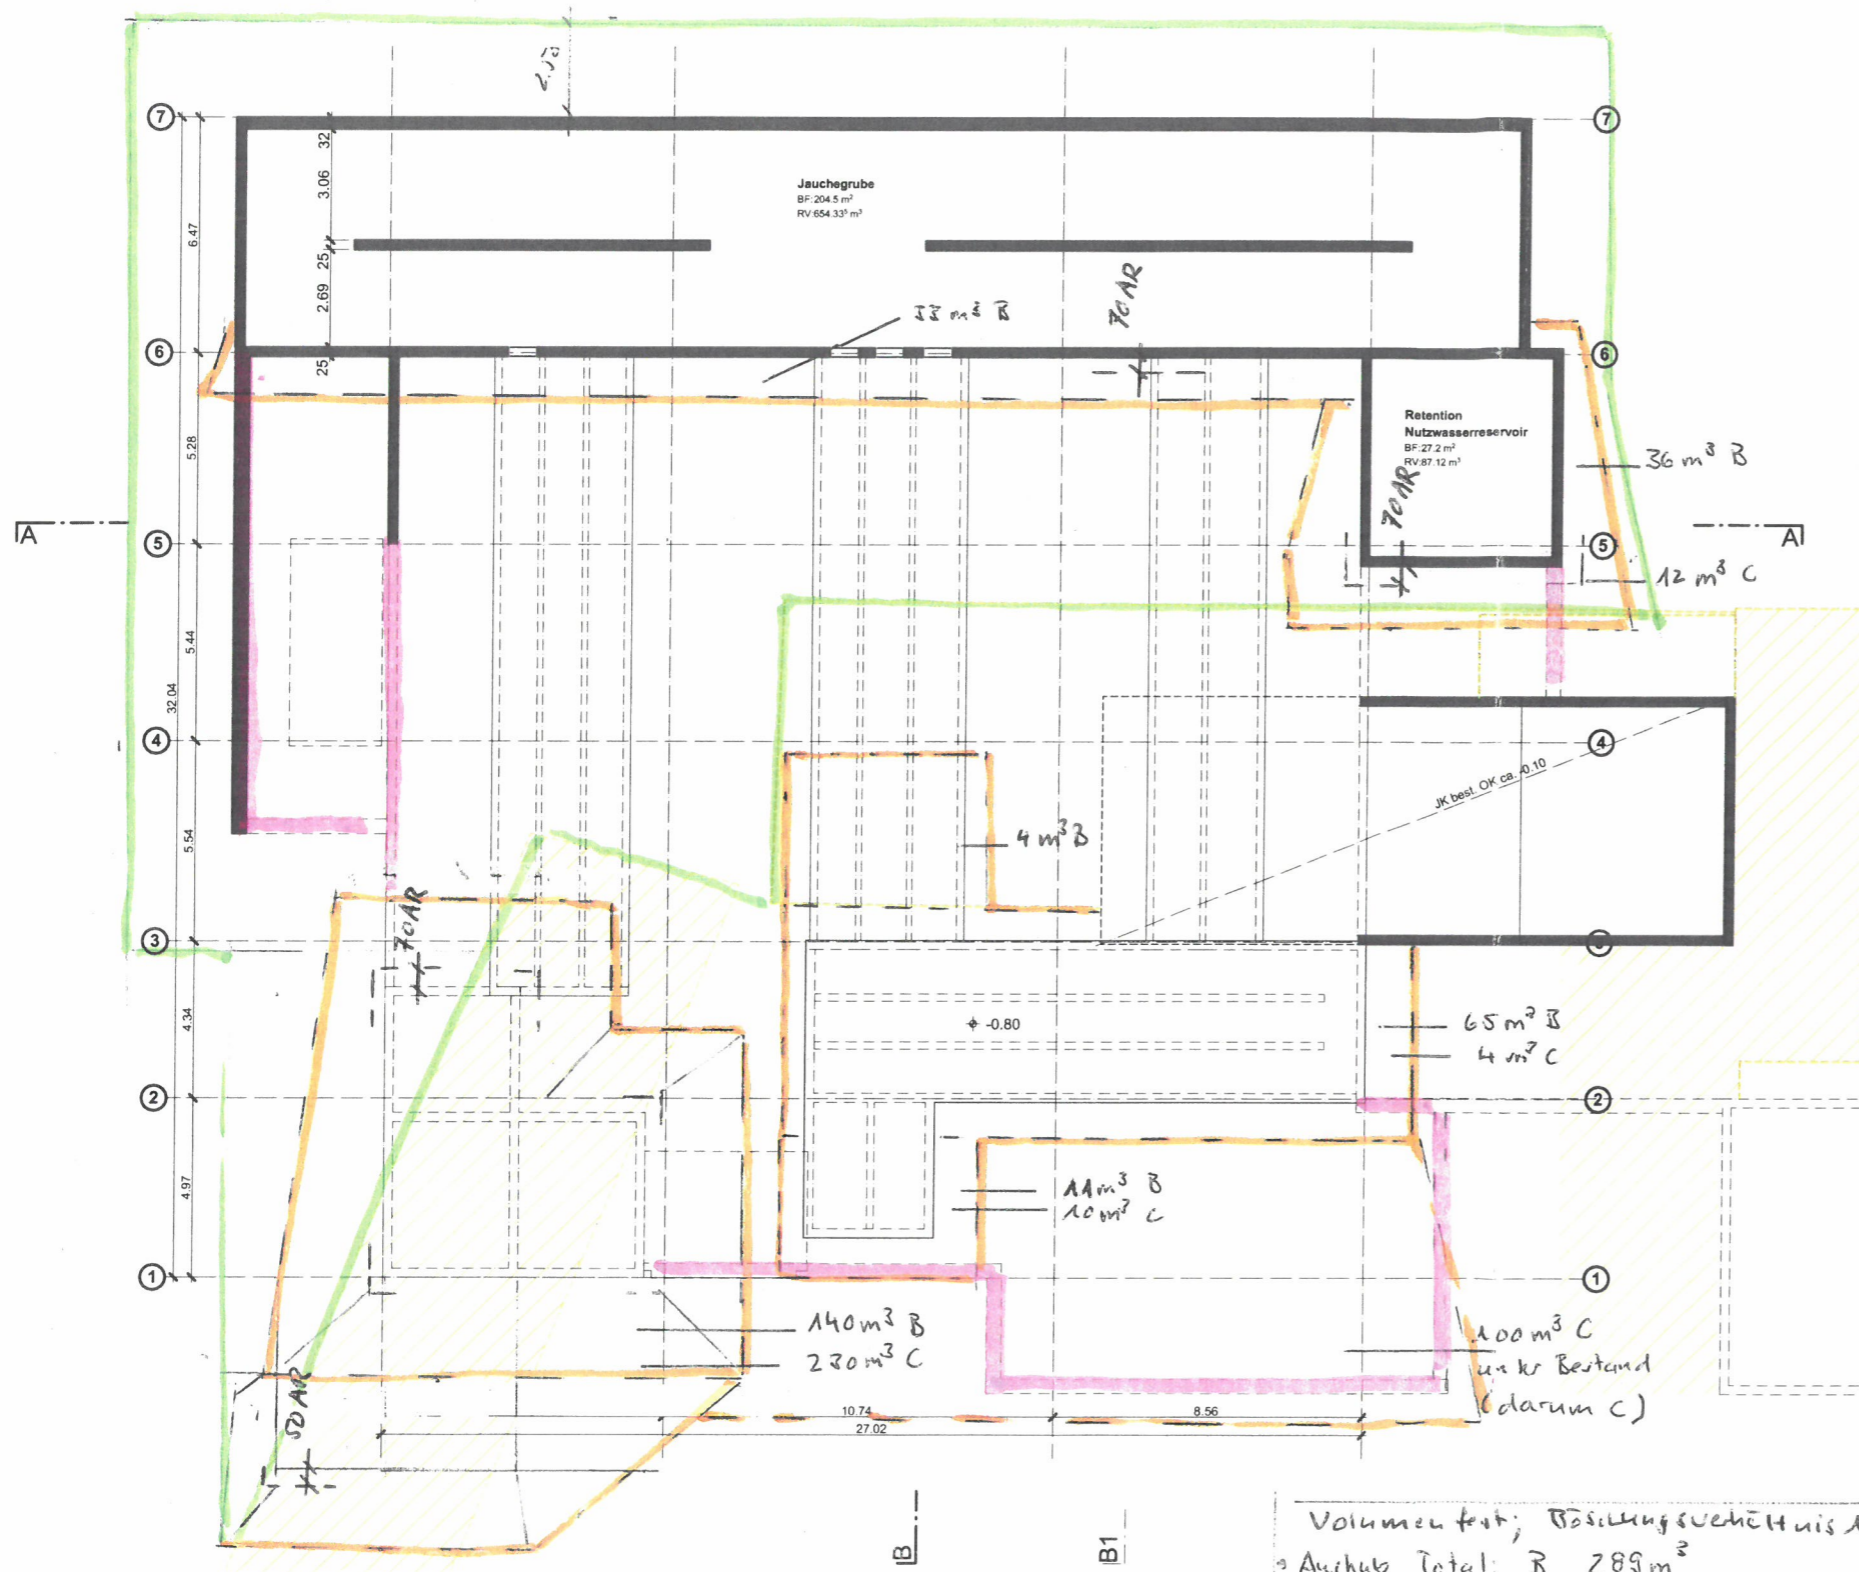 2.50
7
7
32
3.06
Jauchegrube
BF:204.5 m²
RV:654.33⁵ m³
6.47
25
2.69
70 AR
33 m³ B
6
6
25
Retention
Nutzwasserreservoir
BF:27.2 m²
RV:87.12 m³
5.28
36 m³ B
70 AR
A
A
5
5
12 m³ C
5.44
32.04
4
4
JK best. OK ca. -0.10
5.54
4 m³ B
70 AR
3
3
4.34
-0.80
65 m³ B
4 m³ C
2
2
4.97
11 m³ B
10 m³ C
1
1
140 m³ B
230 m³ C
100 m³ C
unter Bestand
(darum C)
50 AR
10.74
8.56
27.02
B
B1
Volumen fest; Böschungsverhältnis 1
Aushub Total: B 289 m³